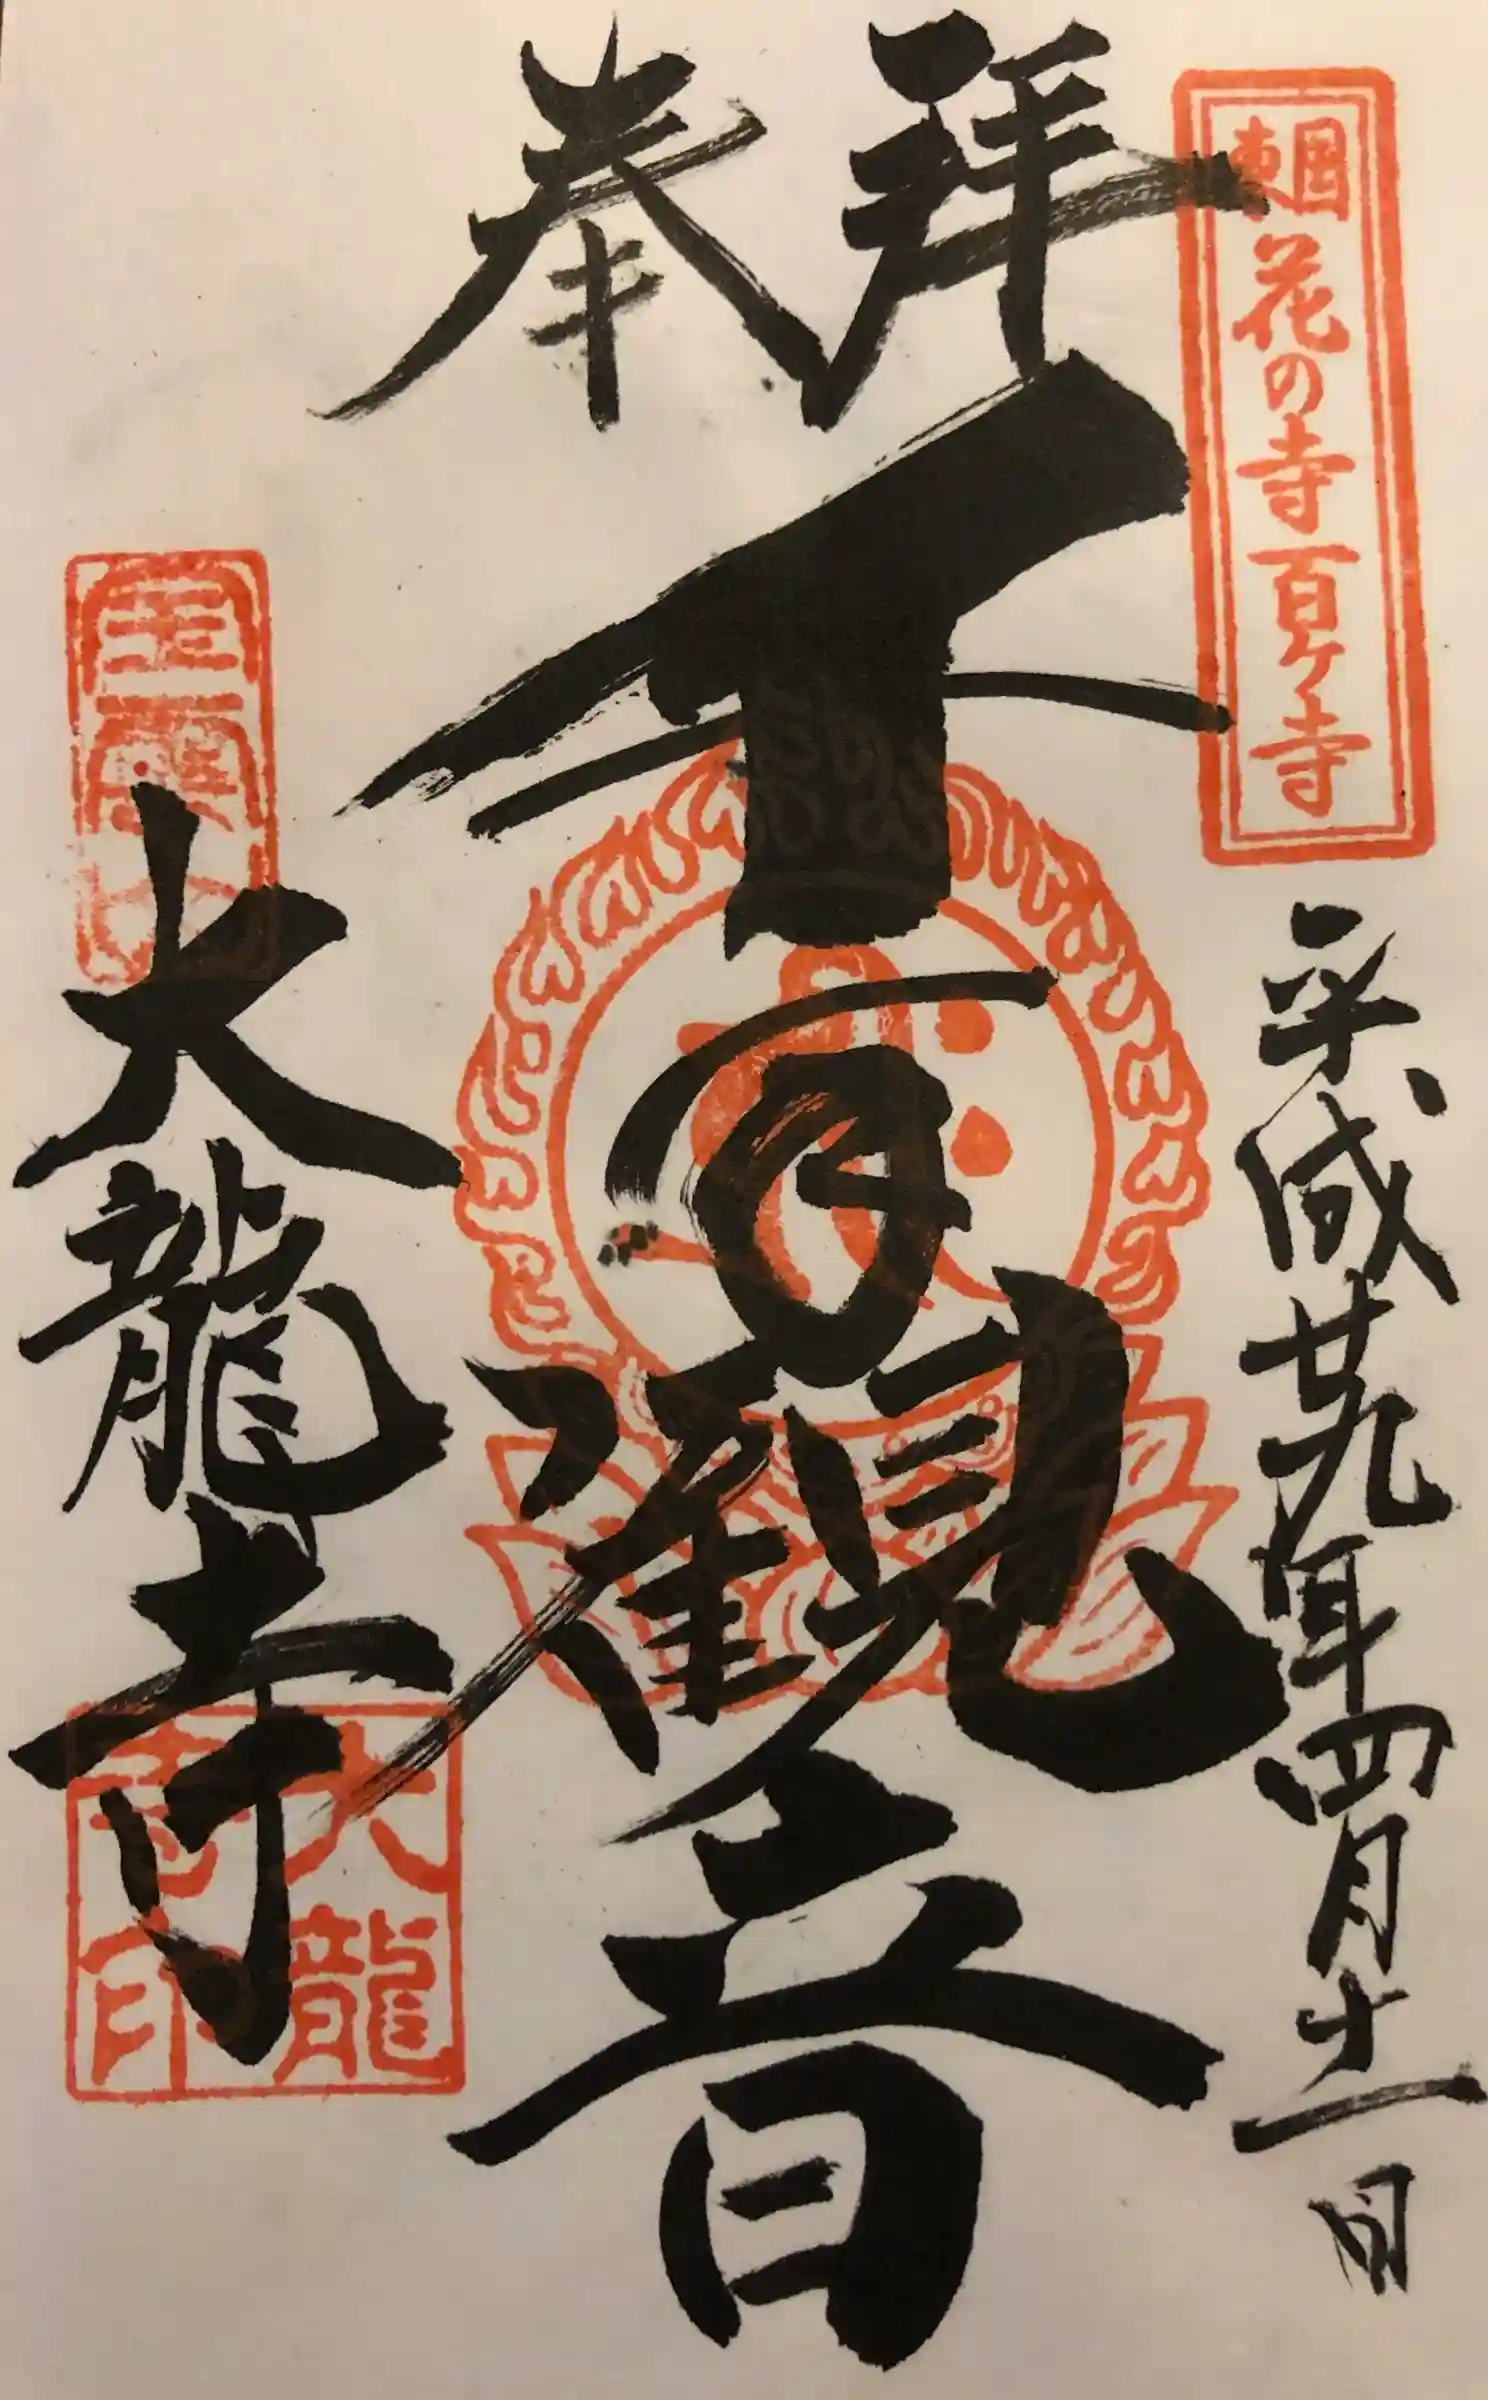 東国花の寺百ヶ寺
平成廿九年四月十一日
奉拝
観音
大龍寺
大龍
寺印